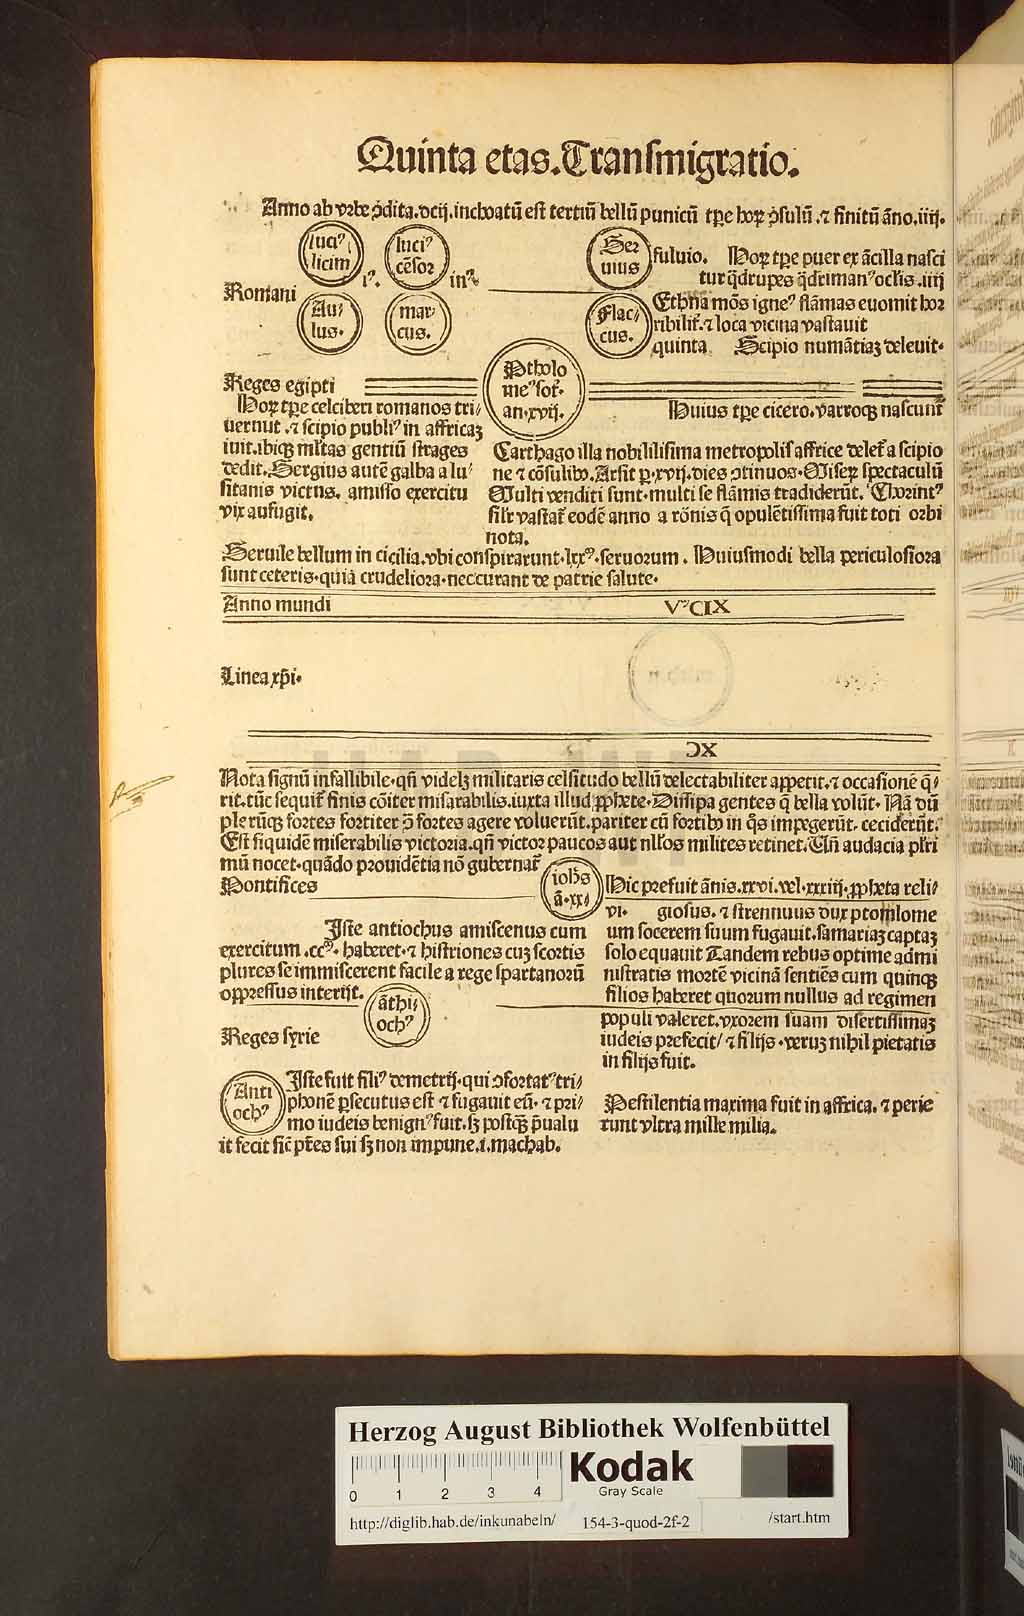 Quinta etas. Transmigratio.
Anno ab vrbe ↄdita. dcij. inchoatū est tertiū bellū punicū tp̄e hoꝝ ↄsulū. ⁊ finitū āno. iiij.
luciꝰ licini
luciꝰ cēsor
Ser uius
iꝰ.
inꝰ.
fuluio. Hoꝝ tp̄e puer ex ācilla nasci
tur q̄drupes q̄drimanꝰ oclis. iiij
Romani
Au- lus.
mar- cus.
Flac- cus.
Ethna mōs igneꝰ flāmas euomit hor
ribilit̄. ⁊ loca vicina vastauit
quinta Scipio numātiaꝫ deleuit.
Reges egipti
Ptholo meꝰ sot̄. an. xvij.
Hoꝝ tp̄e celciberi romanos tri-
uerunt. ⁊ scipio publiꝰ in affricaꝫ
iuit. ibiqꝫ ml̄tas gentiū strages
dedit. Sergius autē galba a lu-
sitanis victus. amisso exercitu
vix aufugit.
Huius tp̄e cicero. varroqꝫ nascunt̄
Carthago illa nobilissima metropolis affrice delet̄ a scipio
ne ⁊ cōsulibꝰ. Arsit p. xvij. dies ↄtinuos. Miseꝝ spectaculū
Multi venditi sunt. multi se flāmis tradiderūt. Chorintꝰ
silr̄ vastat̄ eodē anno a rōnis q̄ opulētissima fuit toti orbi
nota.
Seruile bellum in cicilia. vbi conspirarunt. lxxᵐ. seruorum. Huiusmodi bella periculosiora
sunt ceteris. quia crudeliora. nec curant de patrie salute.
Anno mundi VᵐCIX
Linea xp̄i.
XC
Nota signū infallibile. qn̄ videlꝫ militaris celsitudo bellū delectabiliter appetit. ⁊ occasionē q̄-
rit. tūc sequit̄ finis cōiter misarabilis. iuxta illud ꝓphete. Dissipa gentes q̄ bella volūt. Nā dū
plerūqꝫ fortes fortiter ↄ̄ fortes agere voluerūt. pariter cū fortibꝰ in q̄s impegerūt. ceciderūt.
Est siquidē miserabilis victoria. qn̄ victor paucos aut nll̄os milites retinet. Un̄ audacia pl̄ri
mū nocet. quādo prouidētia nō gubernat̄
Pontifices
ioh̄s ā. xx-
Hic prefuit ānis. xxvi. vel. xxxiij. ꝓpheta reli-
vi. giosus. ⁊ strennuus dux ptomlome
um socerem suum fugauit. samariaꝫ captaꝫ
solo equauit Tandem rebus optime admi
nistratis mortē vicinā sentiēs cum quinqꝫ
filios haberet quorum nullus ad regimen
populi valeret. vxorem suam disertissimaꝫ
iudeis prefecit/ ⁊ filijs. veruꝫ nihil pietatis
in filijs fuit.
Iste antiochus amiscenus cum
exercitum. ccᵐ. haberet. ⁊ histriones cuꝫ scortis
plures se immiscerent facile a rege spartanorū
oppressus interijt.
āthi- ochꝰ
Reges syrie
Anti ochꝰ
Iste fuit filiꝰ demetrij. qui ↄfortatꝰ tri-
phonē ꝑsecutus est ⁊ fugauit eū. ⁊ pri-
mo iudeis benignꝰ fuit. sꝫ postqꝫ p̄ualu
it fecit sic̄ pr̄es sui sꝫ non impune. i. machab.
Pestilentia maxima fuit in affrica. ⁊ perie
runt vltra mille milia.
Herzog August Bibliothek Wolfenbüttel
0 1 2 3 4
Kodak
Gray Scale
http://diglib.hab.de/inkunabeln/ 154-3-quod-2f-2 /start.htm